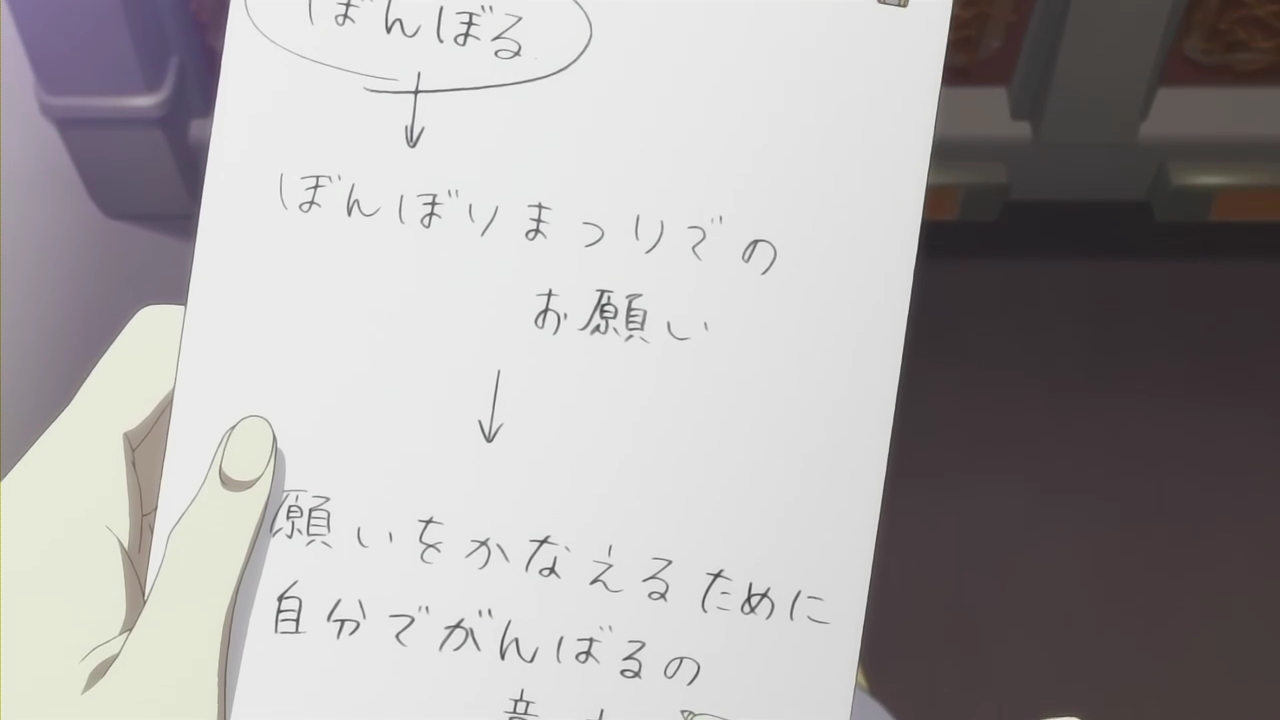 ぼんぼる
ぼんぼりまつりでの
お願い
願いをかなえるために
自分でがんばるの